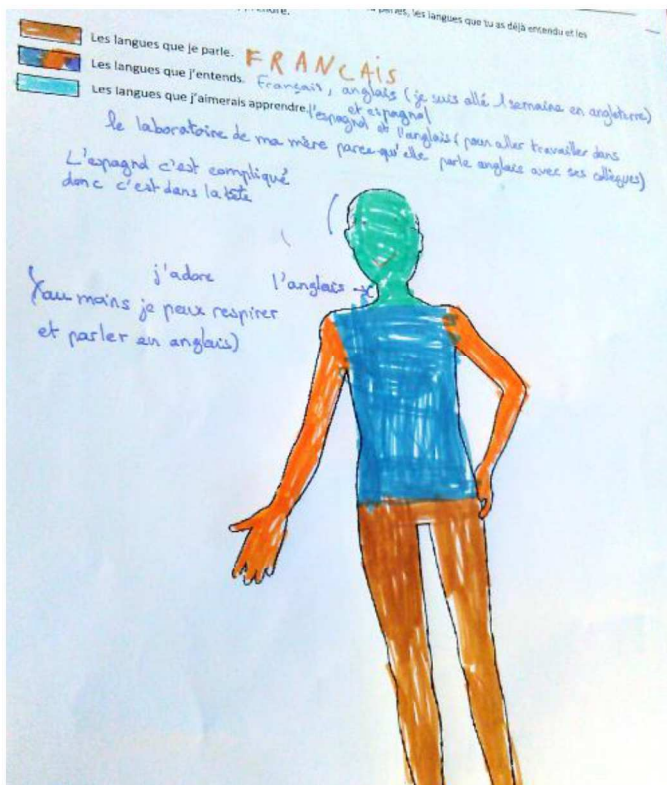 les langues que tu as déjà entendu et les
Les langues que je parle. FRANCAIS
Les langues que j'entends. Français, anglais (je suis allé 1 semaine en angleterre)
et espagnol
Les langues que j'aimerais apprendre. l'espagnol et l'anglais (pour aller travailler dans
le laboratoire de ma mère parce qu'elle parle anglais avec ses collègues)
L'espagnol c'est compliqué
donc c'est dans la tête
j'adore l'anglais
(au moins je peux respirer
et parler en anglais)